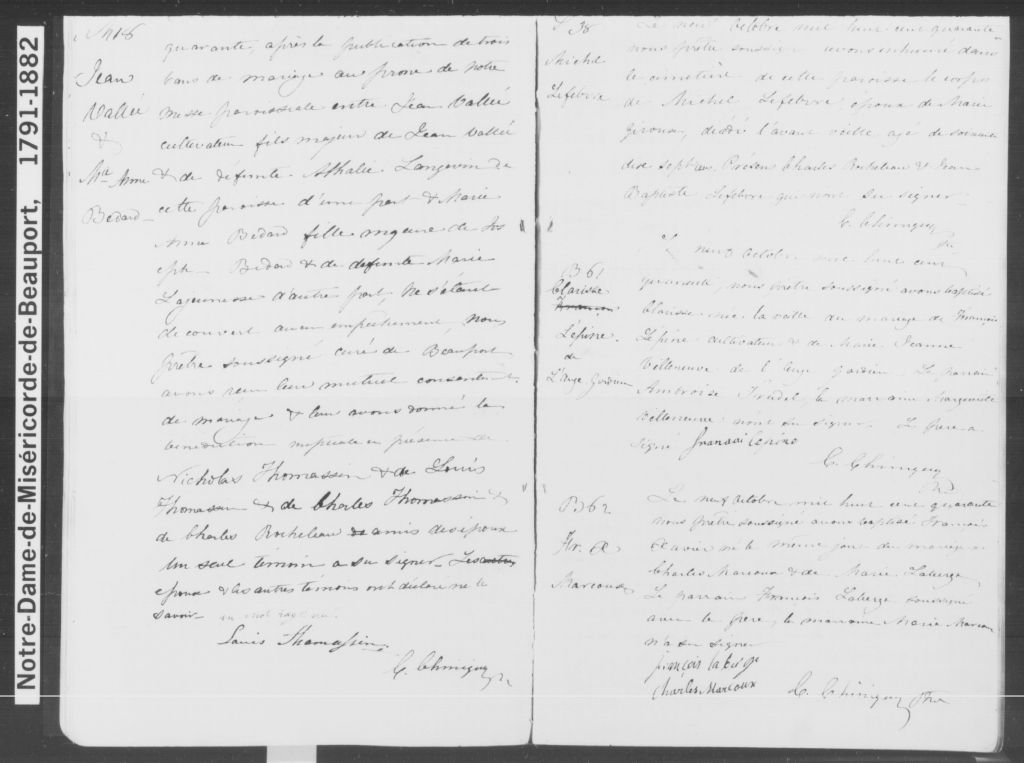 Notre-Dame-de-Miséricorde-de-Beauport, 1791-1882
Jean
Vallée
&
Mie Anne
Bedard
quarante, après la publication de trois
bans de mariage au prone de notre
messe paroissiale entre Jean Vallée
cultivateur fils majeur de Jean Vallée
& de défunte Athalie Langevin de
cette paroisse d'une part & Marie
Anne Bedard fille majeure de Jos
eph Bedard & de defunte Marie
Lajeunesse d'autre part, ne s'étant
découvert aucun empêchement, nous
prêtre soussigné curé de Beauport
avons reçu leur mutuel consentement
de mariage & leur avons donné la
benediction nuptiale en présence de
Nicholas Thomassin & de Louis
Thomassin & de Charles Thomassin &
de Charles Rocheleau amis des époux
Un seul témoin a su signer Les autres
epoux & les autres témoins ont déclaré ne le
savoir
Louis Thomassin
C. Chiniquy
S 38
Michel
Lefebvre
Le neuf Octobre mil huit cent quarante
nous prêtre soussigné avons inhumé dans
le cimetière de cette paroisse le corps
de Michel Lefebvre, époux de Marie
Giroux, décédé l'avant veille agé de soixante
dix sept ans. Présens Charles Rocheleau & Jean
Baptiste Lefebvre qui n'ont su signer
C. Chiniquy
Ptre
B 61
Clarisse
Lépine
de
L'Ange Gardien
Le neuf Octobre mil huit cent
quarante, nous prêtre soussigné avons baptisé
Clarisse née la veille du mariage de François
Lépine cultivateur & de Marie Jeanne
Villeneuve de l'Ange Gardien. Le parrain
Ambroise Trudel, la marraine Marguerite
Villeneuve n'ont su signer. Le père a
signé francoi lepine
C. Chiniquy
Ptre
B 62
Fr. X
Marcoux
Le neuf Octobre mil huit cent quarante
nous prêtre soussigné avons baptisé François
Xavier né le même jour du mariage de
Charles Marcoux & de Marie Laberge
Le parrain François Laberge soussigné
avec le père, la marraine Marie Marcoux
n'a su signer
françois laberge
Charles Marcoux
C. Chiniquy Ptre